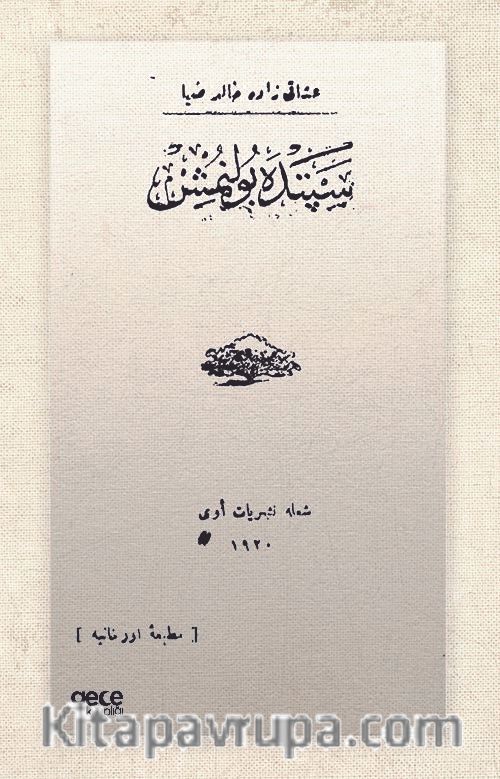 عشاقى زاده خالد ضيا
سپتده بولنمش
شعله نشريات أوى
١٩٢٠
[ مطبعهٔ اورخانيه ]
gece
kitaplığı
Kitapavrupa.com